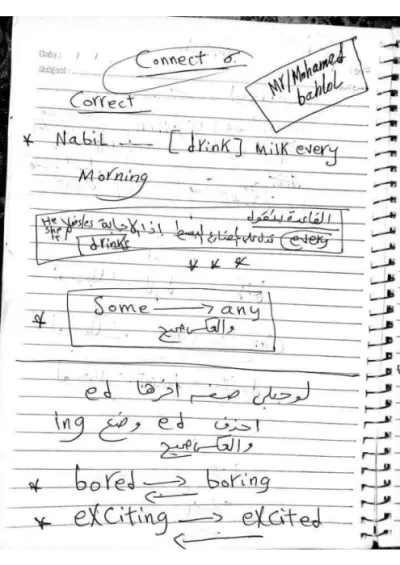 Date: / /
Subject:
Connect 6.
Mr/Mohamed
bahlol
Correct
* Nabil ---- [drink] milk every
Morning
القاعدة بتقول
He
she
it
every تدل على المضارع البسيط اذا الاجابة
drinks
* * *
* Some → any
والعكس صحيح
لو جبلى صفه اخرها ed
احذف ed وضع ing
والعكس صحيح
* bored → boring
* exciting → excited